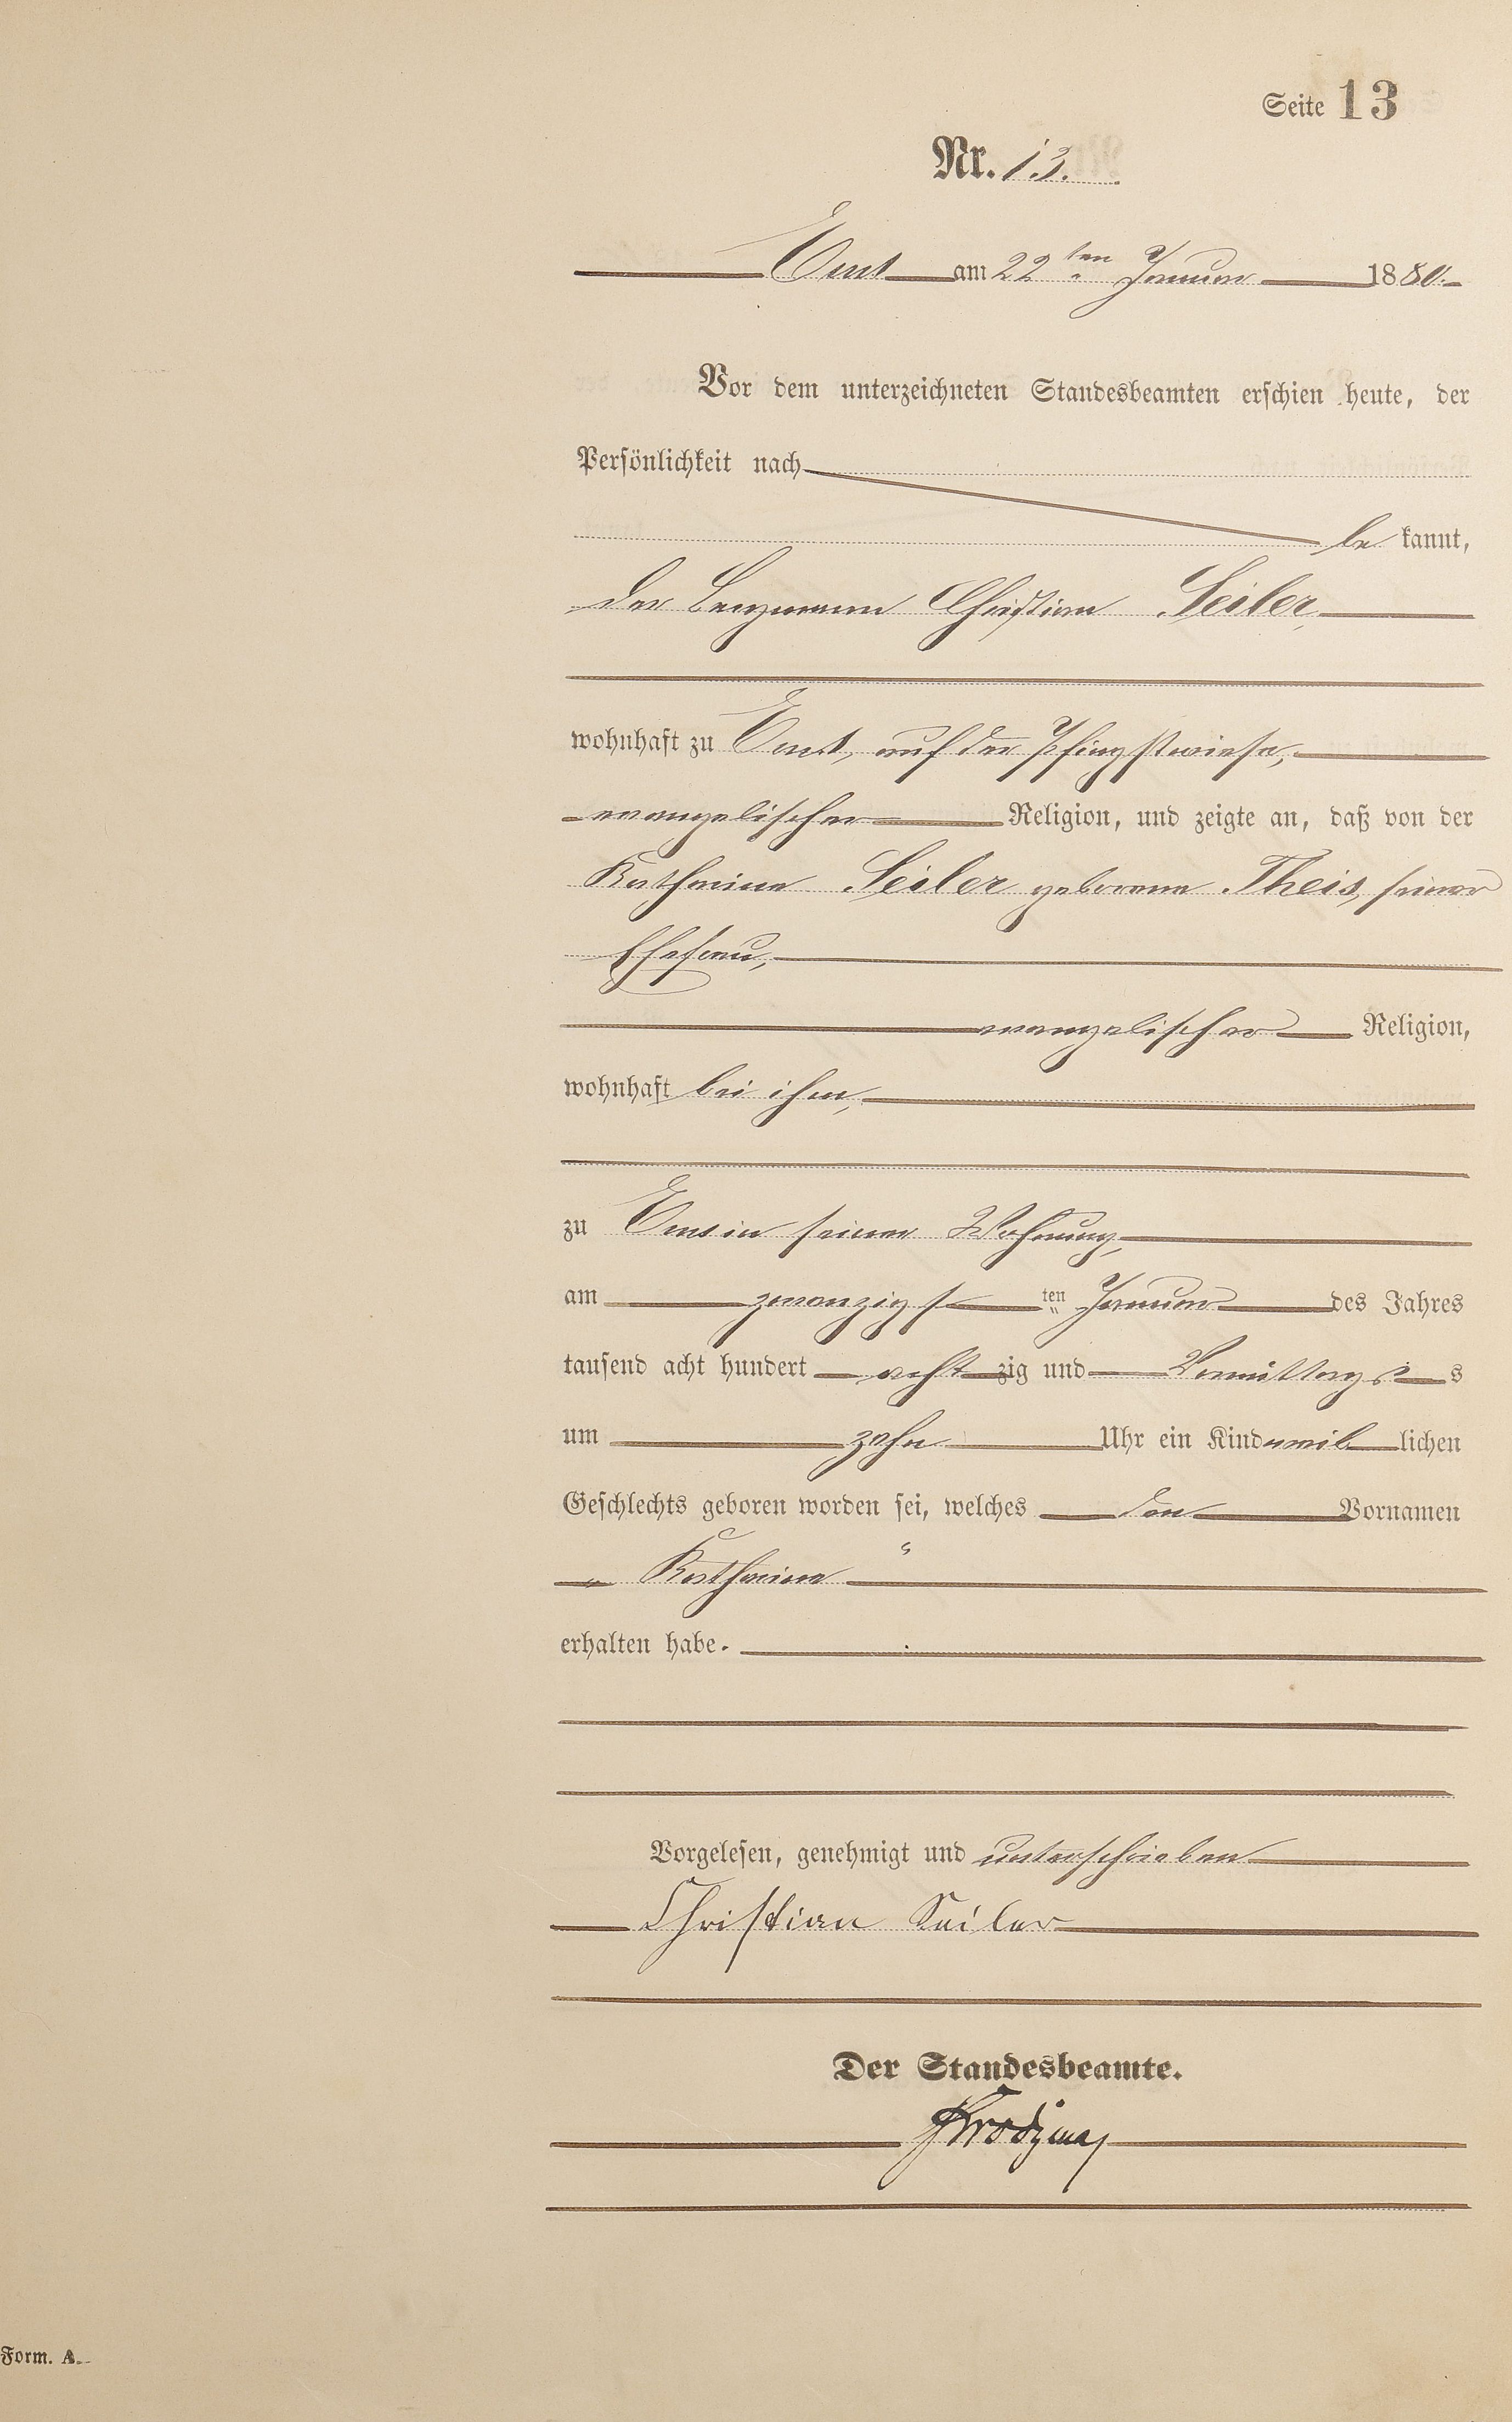 Seite 13
Nr. 13.
Ems am 22ten Januar 1880.
Vor dem unterzeichneten Standesbeamten erschien heute, der
Persönlichkeit nach
be kannt,
der Bergmann Christian Seiler,
wohnhaft zu Ems, auf der Pfingstwiese,
evangelischer Religion, und zeigte an, daß von der
Katharina Seiler geborene Theis, seiner
Ehefrau,
evangelischer Religion,
wohnhaft bei ihm,
zu Ems in seiner Wohnung,
am zwanzigsten Januar des Jahres
tausend acht hundert achtzig und Vormittags
um zehn Uhr ein Kind weiblichen
Geschlechts geboren worden sei, welches den Vornamen
„Katharina“
erhalten habe.
Vorgelesen, genehmigt und unterschrieben
Christian Seiler
Der Standesbeamte.
Form. A.